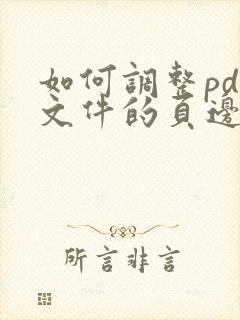 如何調整pd
文件的頁邊
所言非言